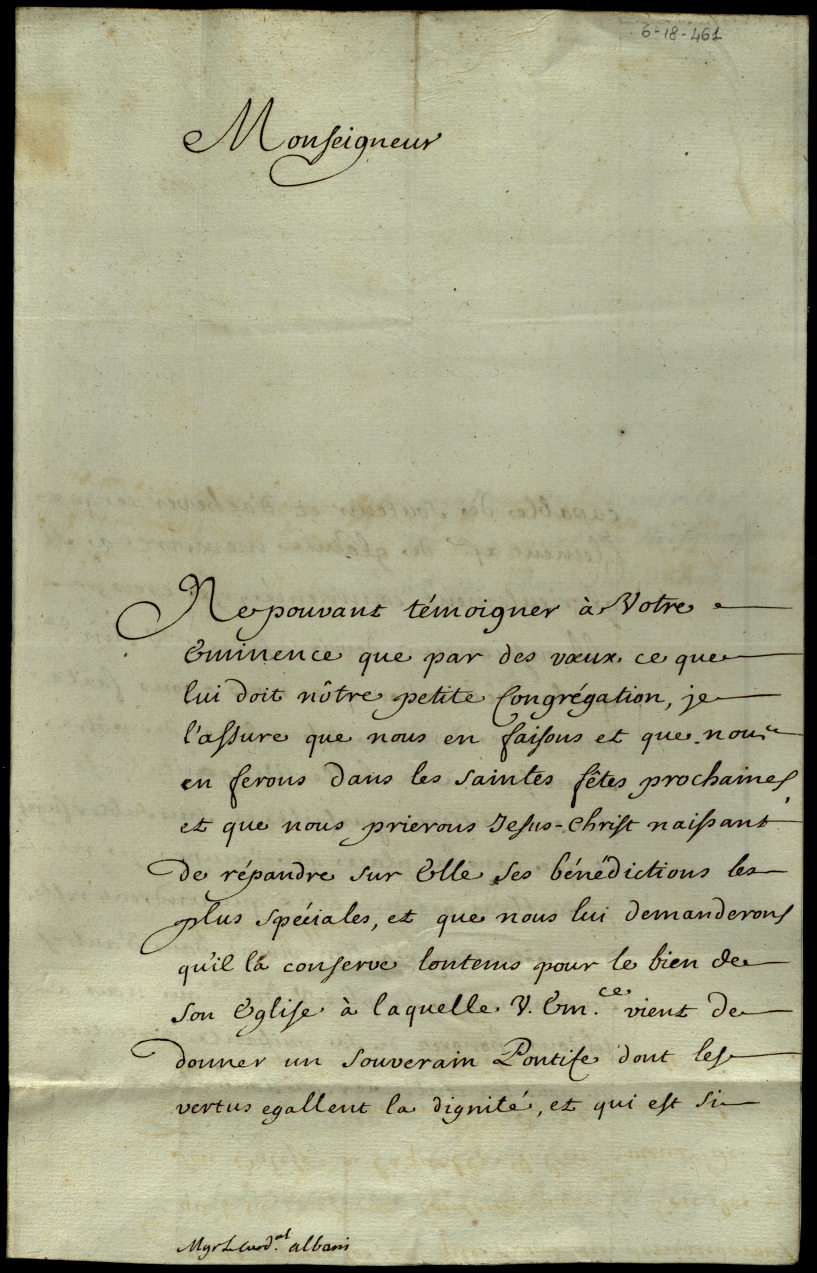 6-18-461
Monseigneur
Ne pouvant témoigner à Votre
Eminence que par des vœux ce que
lui doit nôtre petite Congrégation, je
l'assure que nous en faisons et que nous
en ferons dans les saintes fêtes prochaines,
et que nous prierons Jesus-Christ naissant
de répandre sur Elle ses bénédictions les
plus spéciales, et que nous lui demanderons
qu'il la conserve lontems pour le bien de
son Eglise à laquelle V. Em.ce vient de
donner un souverain Pontife dont les
vertus egallent la dignité, et qui est si
Mgr L Card.al albani